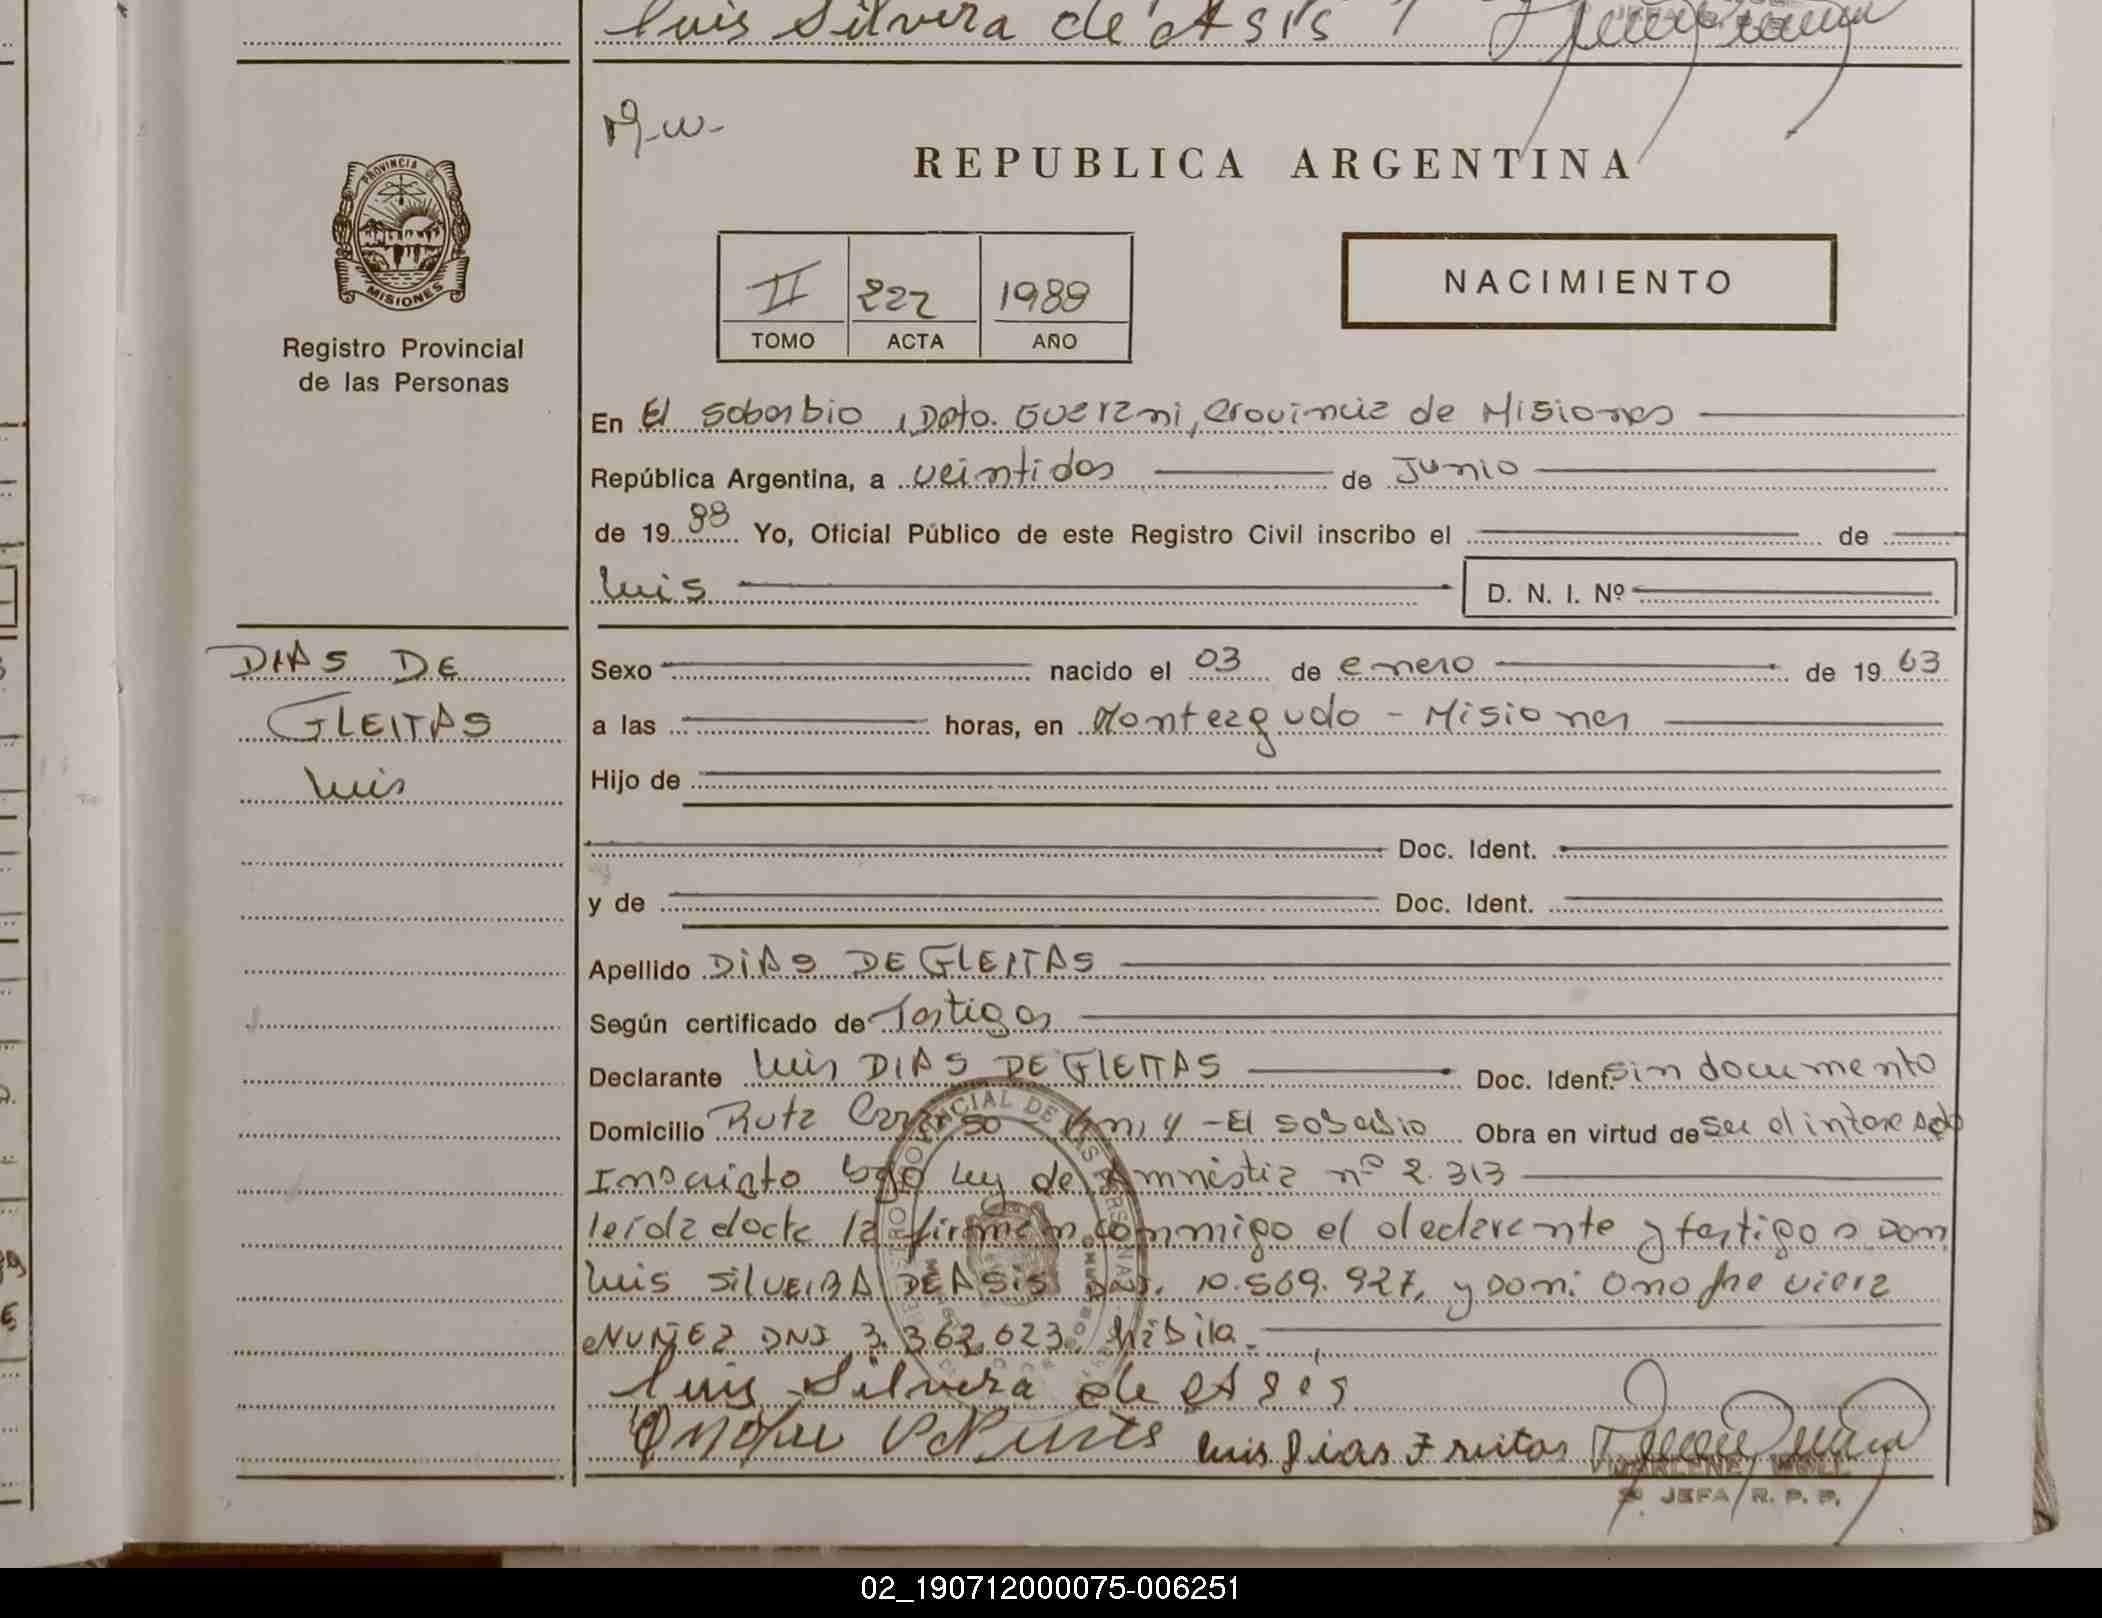 luis Silvera de Asis
M.W.-
PROVINCIA DE
MISIONES
Registro Provincial
de las Personas
REPUBLICA ARGENTINA
II 222 1988
TOMO ACTA AÑO
NACIMIENTO
En El soberbio, Dpto. Guarani, Provincia de Misiones
República Argentina, a veintidos de Junio
de 19 88 Yo, Oficial Público de este Registro Civil inscribo el de
Luis D. N. I. Nº
DIAS DE
GLEITAS
Luis
Sexo nacido el 03 de enero de 19 63
a las horas, en Monteagudo - Misiones
Hijo de
Doc. Ident.
y de Doc. Ident.
Apellido DIAS DE GLEITAS
Según certificado de Testigos
Declarante Luis DIAS DE GLEITAS Doc. Ident. sin documento
Domicilio Ruta Km, 4 - El soberbio Obra en virtud de ser el interesado
Inscripto bajo Ley de Amnistia nº 2.313
leida el acta la firman conmigo el declarante y testigos Don
Luis SILVEIRA DE ASIS DNI. 10.569.927, y Don: Onofre viera
NUÑEZ DNI 3.362.623, hábil
luis Silvera de Asis
Onofre V Nunes luis Dias Freitas
MARLENE WOLL
JEFA R. P. P.
02_190712000075-006251